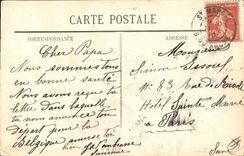 CARTE POSTALE
CORRESPONDANCE
ADRESSE
Cher Papa
Nous sommes tous
en bonne santé
Nous avons reçu ta
lettre dans laquelle
tu nous annonce ton
départ pour la
Belgique amuse toi
bien
Monsieur
Simon
N° 83 Rue de
Hotel Sainte Marie
à Paris